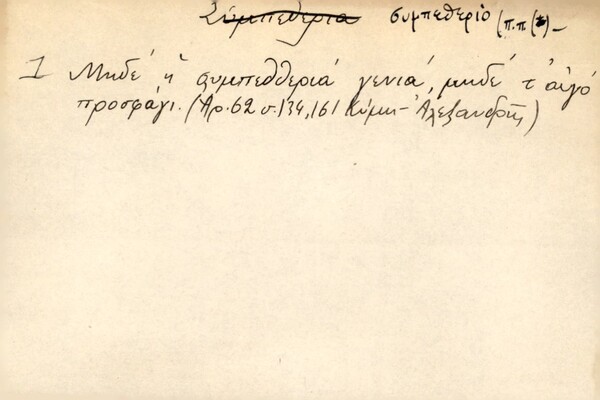 Συμπεθεριά συμπεθεριό (π.π(*)_
1 Μηδέ ἡ συμπεθθεριά γενιά, μηδέ τ' αὐγό
προσφάγι. (Αρ. 62 σ. 134, 161 Κύμη - Ἀλεξανδρῆς)